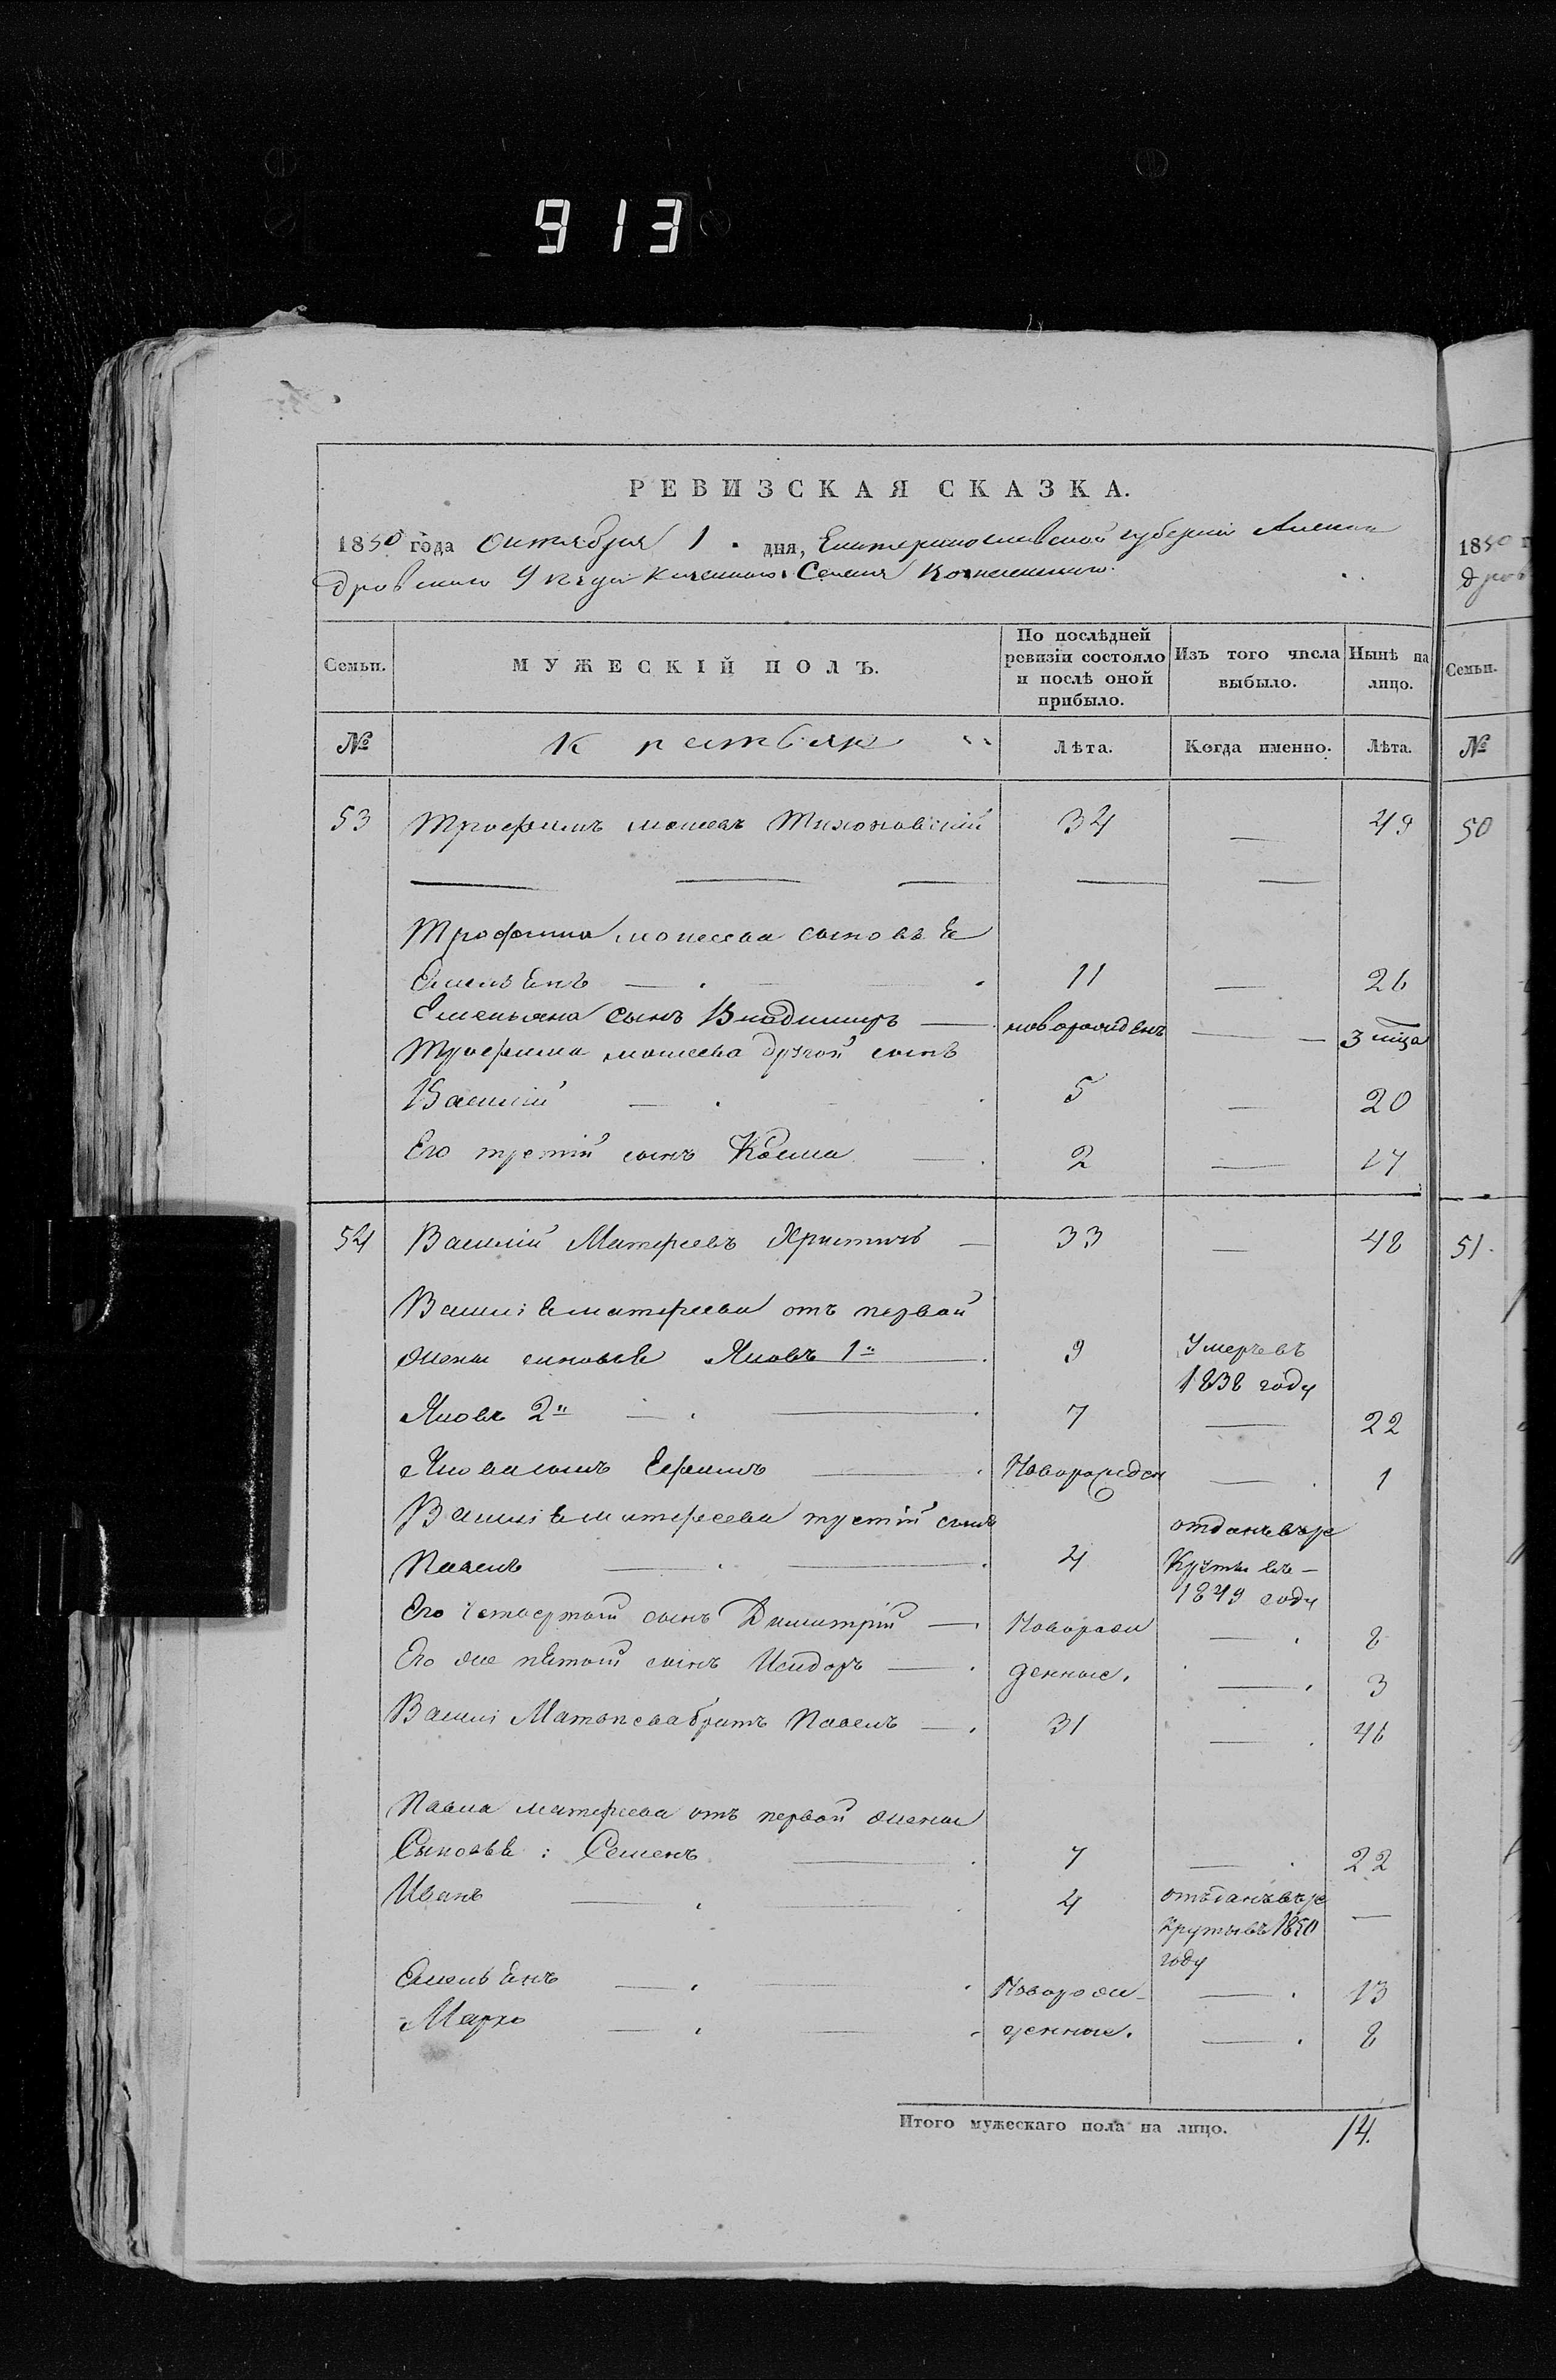 913
РЕВИЗСКАЯ СКАЗКА.
1850 года Октября 1 дня, Екатеринославской губернии Алексан
дровскаго Уезда казеннаго Селения Вознесенского.
1850 г
дров
Семьи. МУЖЕСКІЙ ПОЛЪ. По послѣдней ревизіи состояло и послѣ оной прибыло. Изъ того числа выбыло. Нынѣ на лицо. Семьи.
№ Крестьяне Лѣта. Когда именно. Лѣта. №
53 Трофимъ моисеевъ Тихоновскій 34 — 49 50
Трофима моисеева сыновья
Емельянъ — 11 — 26
Емельяна сынъ Владимиръ — новорожденъ — 3 мца
Трофима моисеева другой сынъ
Василій — 5 — 20
Его третій сынъ Косма — 2 — 17
54 Василій Матфеевъ — 33 — 48 51.
Василія матфеева отъ первой
жены сыновья Яковъ 1й — 9 Умеръ въ
1838 году
Яковъ 2й — 7 — 22
Якова сынъ Ефимъ — Новорожден — 1
Василія матфеева третій сынъ
отданъ въ ре
Павелъ — 4 круты въ —
1849 году
Его четвертый сынъ Димитрій — Новорож — 8
Его же пятый сынъ Исидоръ — денные. — 3
Василія Матвѣева братъ Павелъ — 31 — 46
Павла матфеева отъ первой жены
Сыновья: Семенъ — 7 — 22
Иванъ — 4 отъданъ въ ре —
круты въ 1850
году
Емельянъ — Новорож- — 13
Марко — денные. — 8
Итого мужескаго пола на лицо. 14.